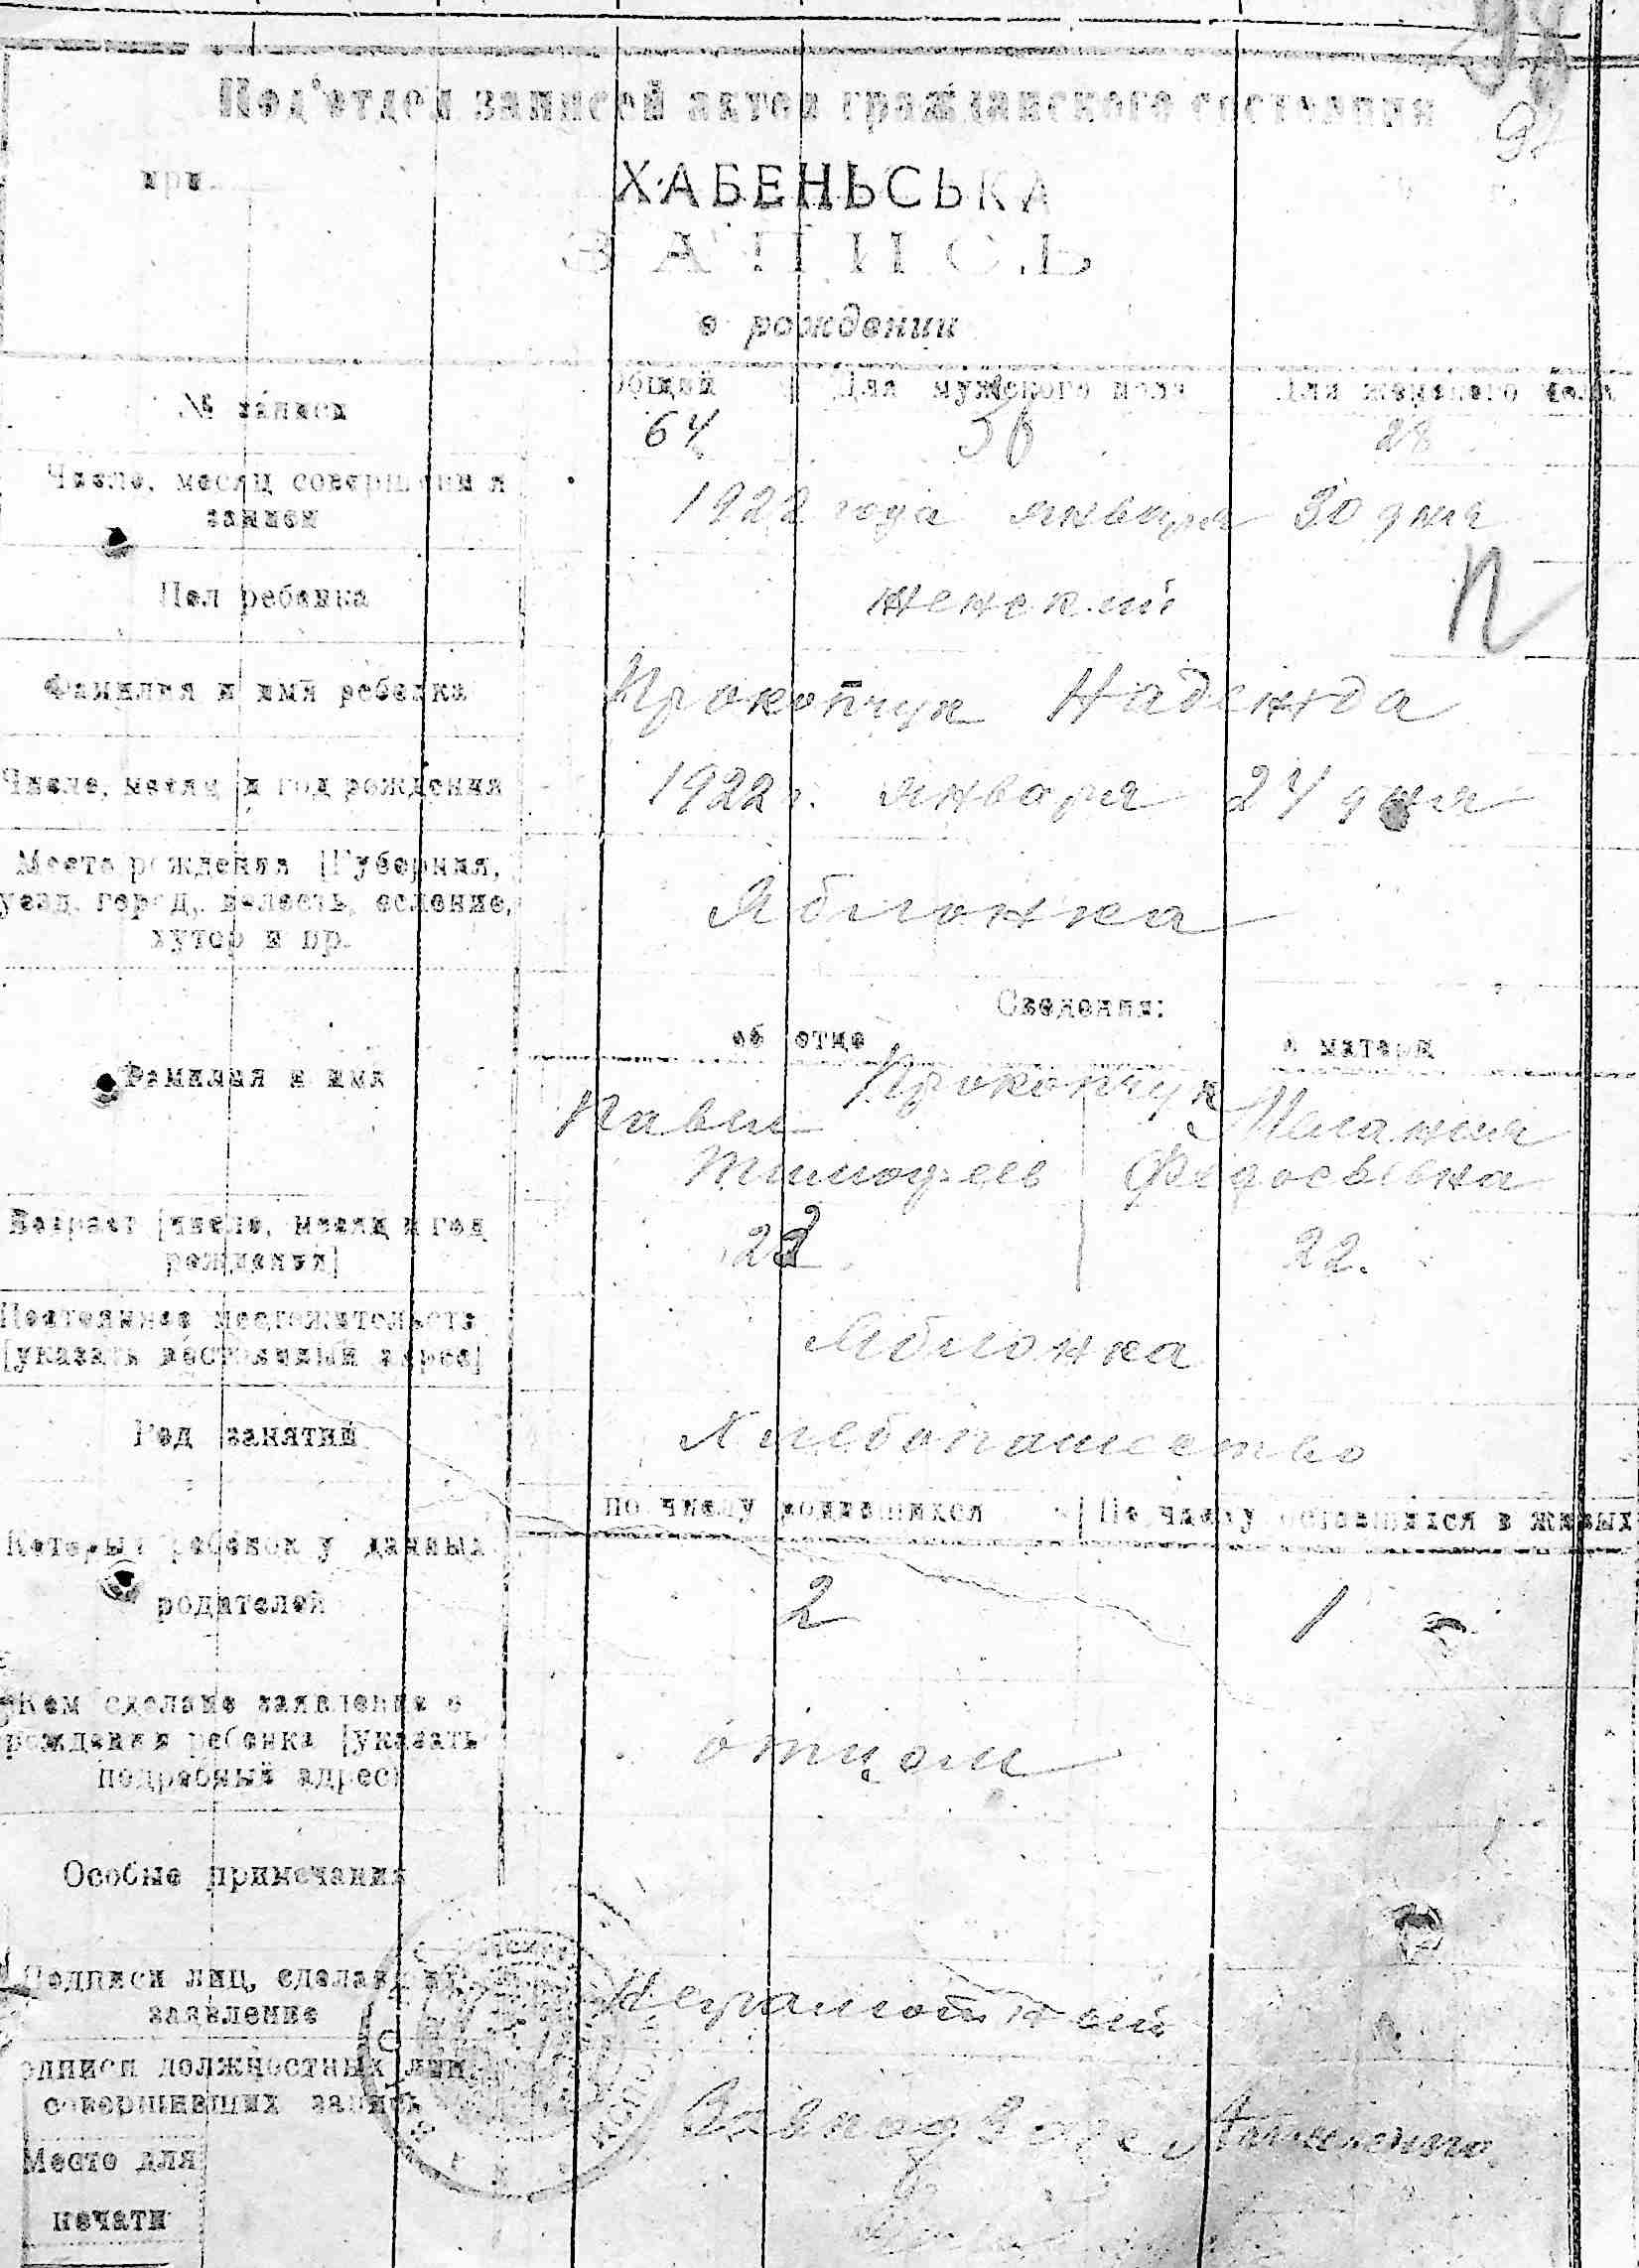 Под'отдел записей актов гражданского состояния
98
при
ХАБЕНЬСЬКА
ЗАПИСЬ
о рождении
№ записи
Общий
Для мужского пола
Для женского пола
64
36
28
Число, месяц совершения записи
1922 года января 30 дня
Пол ребенка
женский
Фамилия и имя ребенка
Прокопчук Надежда
Число, месяц и год рождения
1922 г. января 24 дня
Место рождения [Губерния,
уезд, город, волость, селение,
хутор и пр.
Яблонка
Сведения:
об отце
о матери
Фамилия и имя
Прокопчук
Павел
Тимофеев
Меланжия
Возраст [число, месяц и год
рождения]
22.
Постоянное местожительство
[указать постоянный адрес]
Яблонка
Род занятий
Хлебопашество
по числу родившихся
По числу оставшихся в живых
Который ребенок у данных
родителей
2
1
Кем сделано заявление о
рождении ребенка [указать
подробный адрес]
отцом
Особые примечания
Подписи лиц, сделавших
заявление
Неграмотный
Подписи должностных лиц,
совершивших запись
Место для
печати